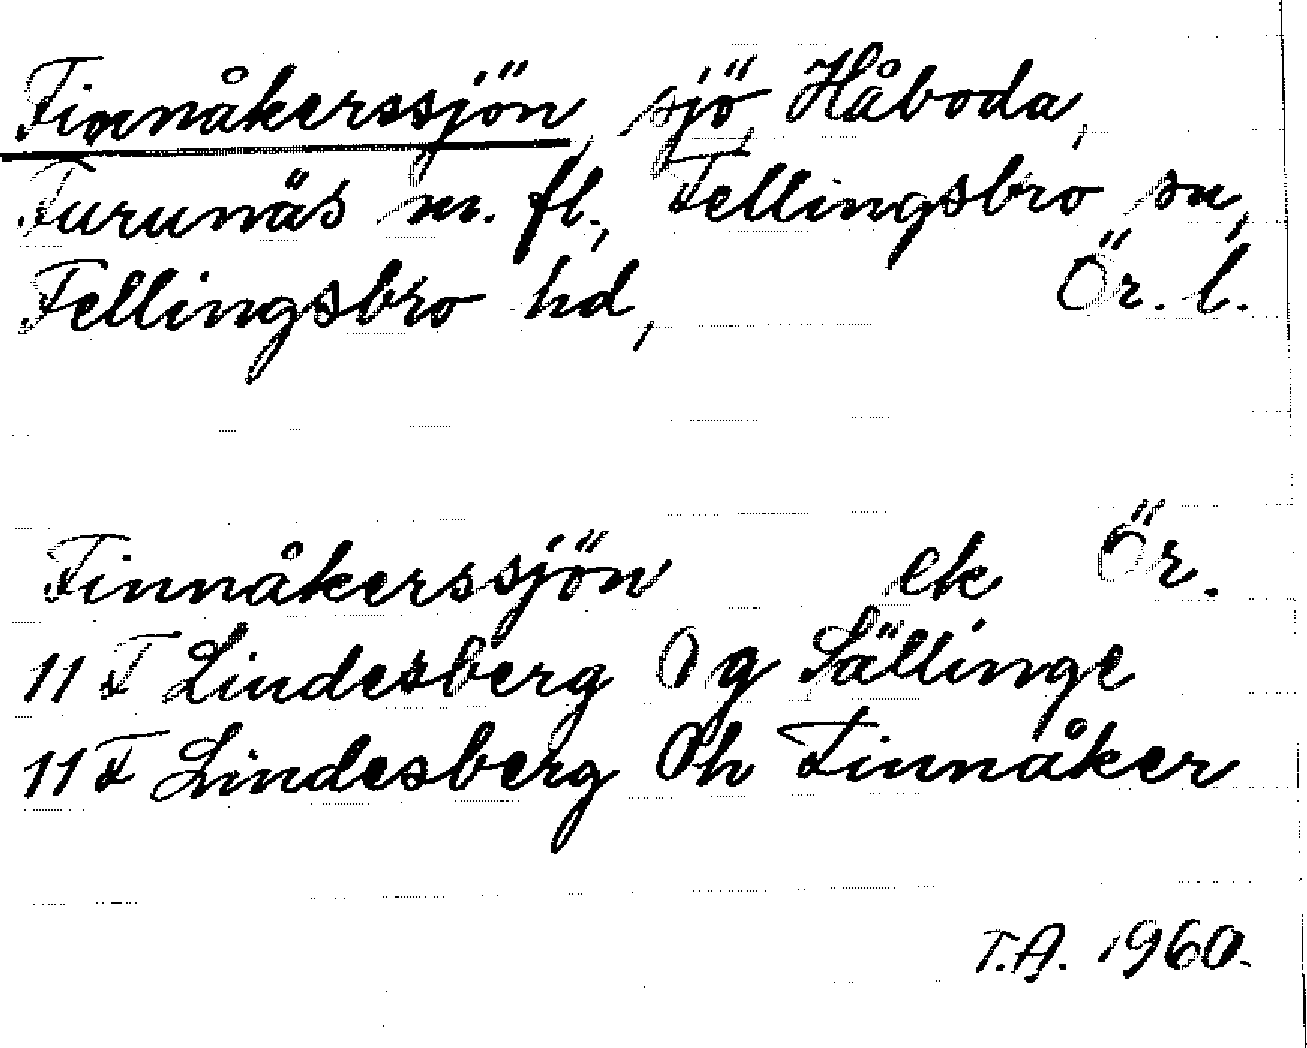 Finnåkerssjön, sjö, Håboda,
Furunäs m. fl., Fellingsbro sn,
Fellingsbro hd, Ör. l.
Finnåkerssjön ek Ör.
11 F Lindesberg 0 g Sällinge
11 F Lindesberg 0 h Finnåker
T.A. 1960.